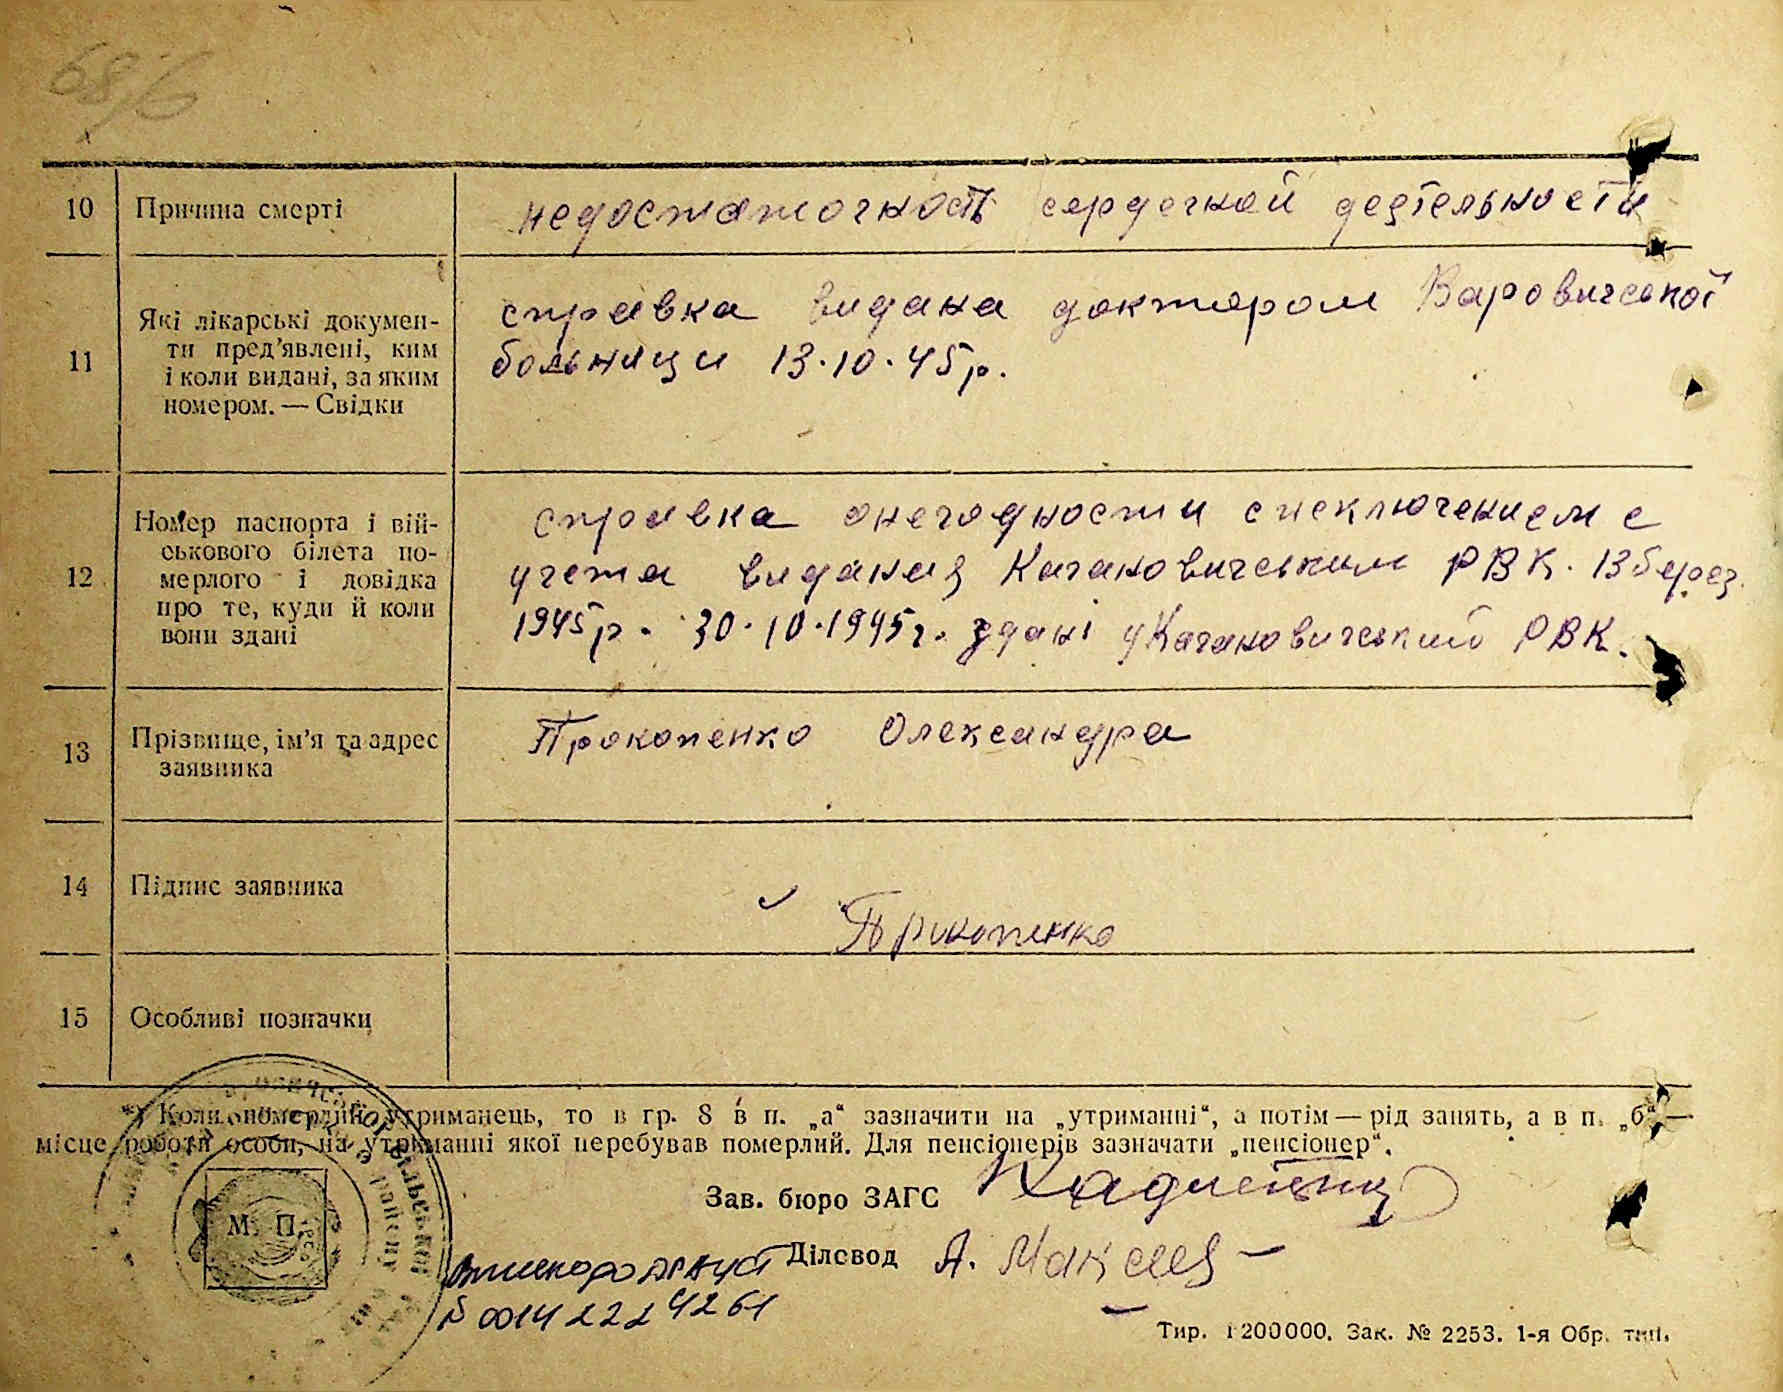 68/6
10 Причина смерті недостаточность сердечной деятельности
11 Які лікарські докумен-
ти пред’явлені, ким
і коли видані, за яким
номером. — Свідки
справка видана доктором Варовичської
больници 13.10.45р.
12 Номер паспорта і вій-
ськового білета по-
мерлого і довідка
про те, куди й коли
вони здані
справка онегодности с исключением с
учета виданая Кагановичським РВК. 13 берез.
1945р. 30.10.1945г. здані у Кагановичський РВК.
13 Прізвище, ім’я та адрес
заявника
Прокопенко Олександра
14 Підпис заявника
Прокопенко
15 Особливі позначки
*) Коли померлий утриманець, то в гр. 8 в п. „а“ зазначити на „утриманні“, а потім — рід занять, а в п. „б“ —
місце роботи особи, на утриманні якої перебував померлий. Для пенсіонерів зазначати „пенсіонер“.
Зав. бюро ЗАГС
М. П.
Діловод А.
00142224261
Тир. 1200000. Зак. № 2253. 1-я Обр. тип.